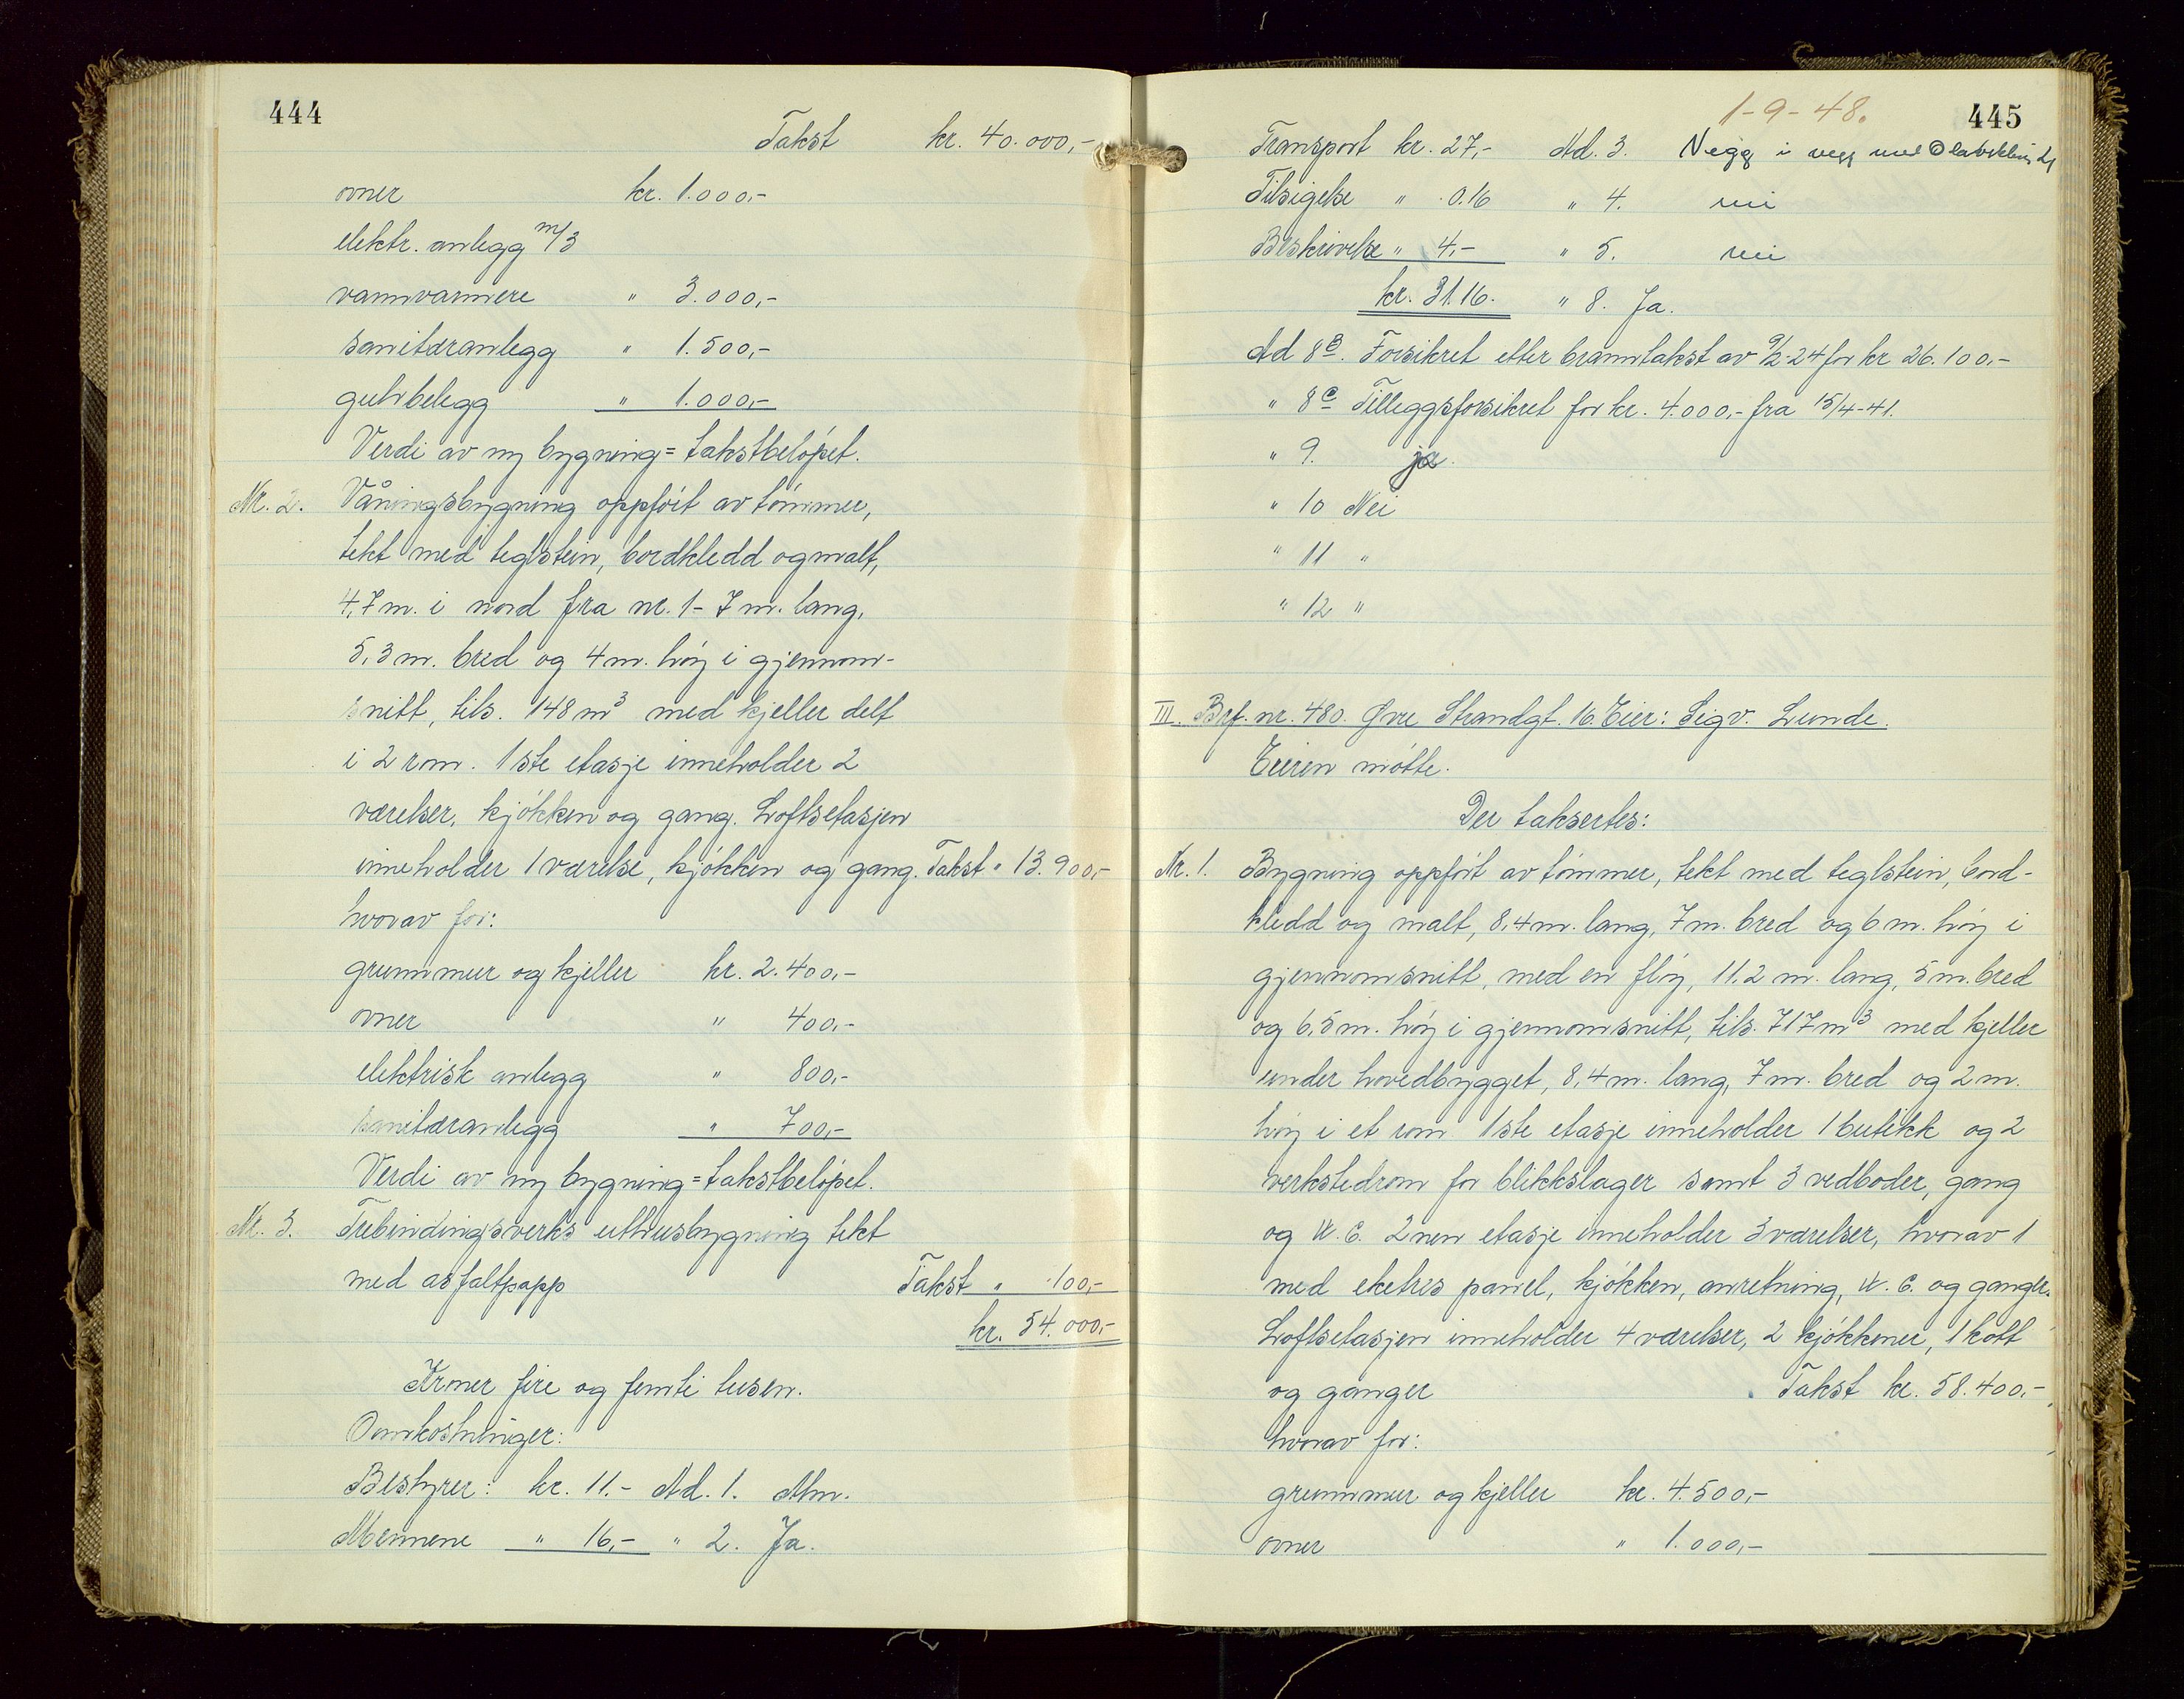 444
Takst kr. 40.000,-
ovner kr. 1.000.-
elektr. anlegg m/3
vannvarmere " 3.000,-
sanitæranlegg " 1.500,-
gulvbelegg " 1.000,-
Verdi av ny bygning = takstbeløpet.
Nr. 2. Våningsbygning oppført av tømmer,
tekt med teglstein, bordkledd og malt,
4,7 m. i nord fra nr. 1 - 7 m. lang,
5,3 m. bred og 4 m. høy i gjennom-
snitt, tils. 148 m³ med kjeller delt
i 2 rom. 1ste etasje inneholder 2
værelser, kjøkken og gang. Loftsetasjen
inneholder 1 værelse, kjøkken og gang. Takst " 13.900,-
hvorav for:
grunnmur og kjeller kr. 2.400,-
ovner " 400,-
elektrisk anlegg " 800,-
sanitæranlegg " 700,-
Verdi av ny bygning = takstbeløpet.
Nr. 3. Trebindingsverks uthusbygning tekt
med asfaltpapp Takst " 100,-
kr. 54.000,-
Kroner fire og femti tusen.
Omkostninger:
Bestyrer: kr. 11.- Ad. 1. Alm.
Mennene " 16,- " 2. Ja.
1-9-48. 445
Transport kr. 27,- Ad. 3. Vegg i vegg med
Tilsigelse " 0.16 " 4. nei
Beskrivelse " 4,- " 5. nei
kr. 31.16. " 8. Ja.
Ad 8B. Forsikret etter branntakst av 9/2-24 for kr 26.100,-
" 8C Tilleggsforsikret for kr. 4.000,- fra 15/4-41.
" 9. ja.
" 10 Nei
" 11 "
" 12 "
III. Brf. nr. 480. Øvre Strandgt. 16. Eier: Sigv. Lunde.
Eieren møtte.
Der taksertes:
Nr. 1. Bygning oppført av tømmer, tekt med teglstein, bord-
kledd og malt, 8,4 m. lang, 7 m. bred og 6 m. høy i
gjennomsnitt, med en fløy, 11.2 m. lang, 5 m. bred
og 6,5 m. høy i gjennomsnitt, tils. 717 m³ med kjeller
under hovedbygget, 8,4 m. lang, 7 m. bred og 2 m.
høy i et rom 1ste etasje inneholder 1 butikk og 2
verkstedrom for blikkslager samt 3 vedboder, gang
og W.C. 2nen etasje inneholder 3 værelser, hvorav 1
med eketres panel, kjøkken, anretning, W.C. og ganger.
Loftsetasjen inneholder 4 værelser, 2 kjøkkener, 1 kott
og ganger Takst kr. 58.400,-
hvorav for:
grunnmur og kjeller kr. 4.500,-
ovner " 1.000,-